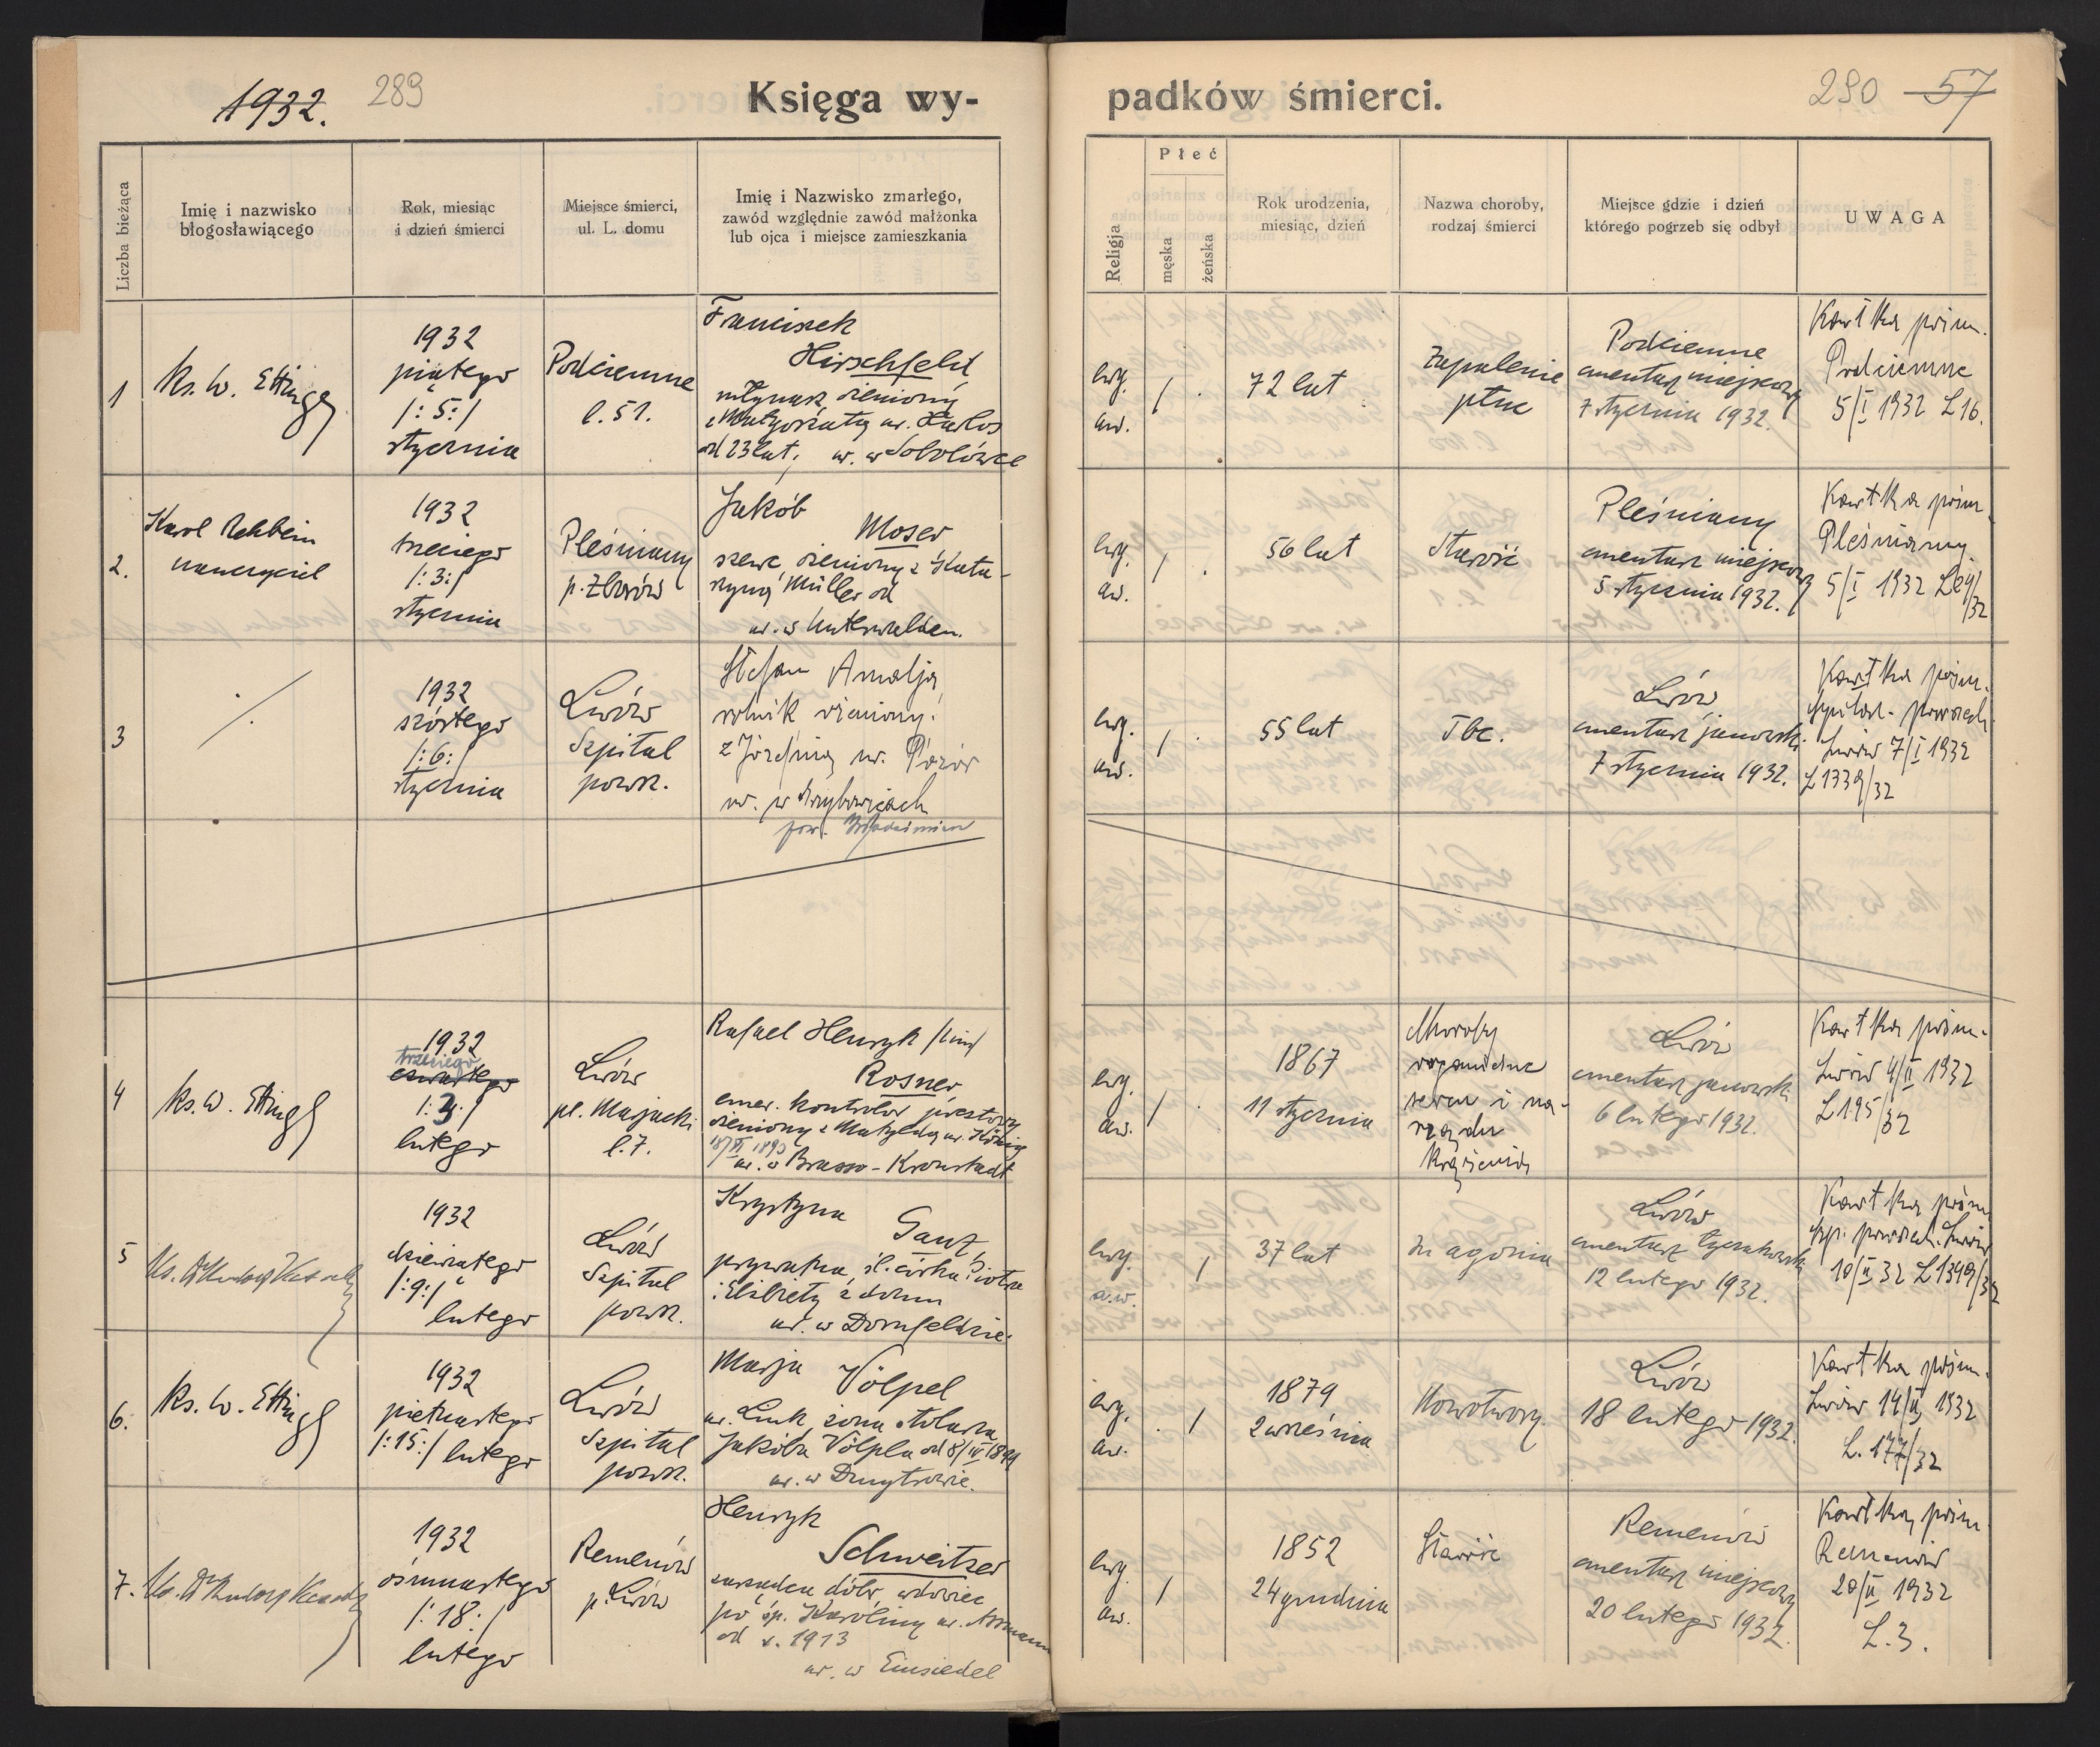 1932.
289
Księga wy-
padków śmierci.
290
57
Liczba bieżąca
Imię i nazwisko
błogosławiącego
Rok, miesiąc
i dzień śmierci
Miejsce śmierci,
ul. L. domu
Imię i Nazwisko zmarłego,
zawód względnie zawód małżonka
lub ojca i miejsce zamieszkania
Religja
Płeć
męska
żeńska
Rok urodzenia,
miesiąc, dzień
Nazwa choroby,
rodzaj śmierci
Miejsce gdzie i dzień
którego pogrzeb się odbył
UWAGA
1
Ks. W. Etting
1932
piątego
/:5:/
stycznia
Podciemne
l. 51.
Franciszek
Hirschfeld
młynarz żeniony
z Małgorzatą ur.
od 23 lat, ur. w
ewg.
aw.
/
.
72 lat
Zapalenie
płuc
Podciemne
cmentarz miejscowy
7 stycznia 1932.
Kartka pośm.
Podciemne
5/I 1932 L16.
2.
Karol Rehbein
nauczyciel
1932
trzeciego
/:3:/
stycznia
Pleśniany
p. Zborów
Jakób
Moser
szewc żeniony z Kata-
rzyną Müller od
ur. w Unterwalden.
ewg.
aw.
/
.
56 lat
Starość
Pleśniany
cmentarz miejscowy
5 stycznia 1932.
Kartka pośm.
Pleśniany
5/I 1932
3
/
1932
szóstego
/:6:/
stycznia
Lwów
Szpital
powsz.
Stefan Amalja
rolnik żeniony
z Józefiną ur.
ur. w
pow.
ewg.
aw.
/
.
55 lat
Tbc.
Lwów
cmentarz janowski
7 stycznia 1932.
Kartka pośm.
szpital. powszech.
Lwów 7/I 1932
L1339/32
4
Ks. W. Etting
1932
trzeciego
czwartego
/:3:/
lutego
Lwów
pl. Marjacki
l. 7.
Rafael Henryk
Rosner
emer. kontrolor pocztowy
żeniony z Matyldą ur. König
ur. w Brasso-Kronstadt
ewg.
aw.
/
.
1867
11 stycznia
Choroby
organiczne
serca i na-
rządu
krążenia
Lwów
cmentarz janowski
6 lutego 1932.
Kartka pośm.
Lwów 4/II 1932
L195/32
5
1932
dziewiątego
/:9:/
lutego
Lwów
Szpital
powsz.
Krystyna
Ganz,
prywatna, śl. córka Piotra
i Elżbiety z domu
ur. w Dornfeldzie.
ewg.
a.w.
/
37 lat
In agonia
Lwów
cmentarz Łyczakowski
12 lutego 1932.
Kartka pośm.
szp. powszech. Lwów
10/II 32 L1349/32
6.
Ks. W. Etting
1932
piętnastego
/:15:/ lutego
Lwów
Szpital
powsz.
Marja
Völpel
ur. Link, żona stolarza
Jakóba Völpla od
ur. w Dmytrowie.
ewg.
aw.
.
/
1879
2 września
Nowotwory.
Lwów
18 lutego 1932.
Kartka pośm.
Lwów 14/II 1932
L. 177/32
7.
1932
ósmnastego
/:18:/
lutego
Remenów
p. Lwów
Henryk
Schweitzer
zarządca dóbr, wdowiec
po śp. Karoliny ur. Assmann
od r. 1913
ur. w Einsiedel
ewg.
aw.
/
1852
24 grudnia
Starość
Remenów
cmentarz miejscowy
20 lutego 1932.
Kartka pośm.
Remenów
20/II 1932
L. 3.